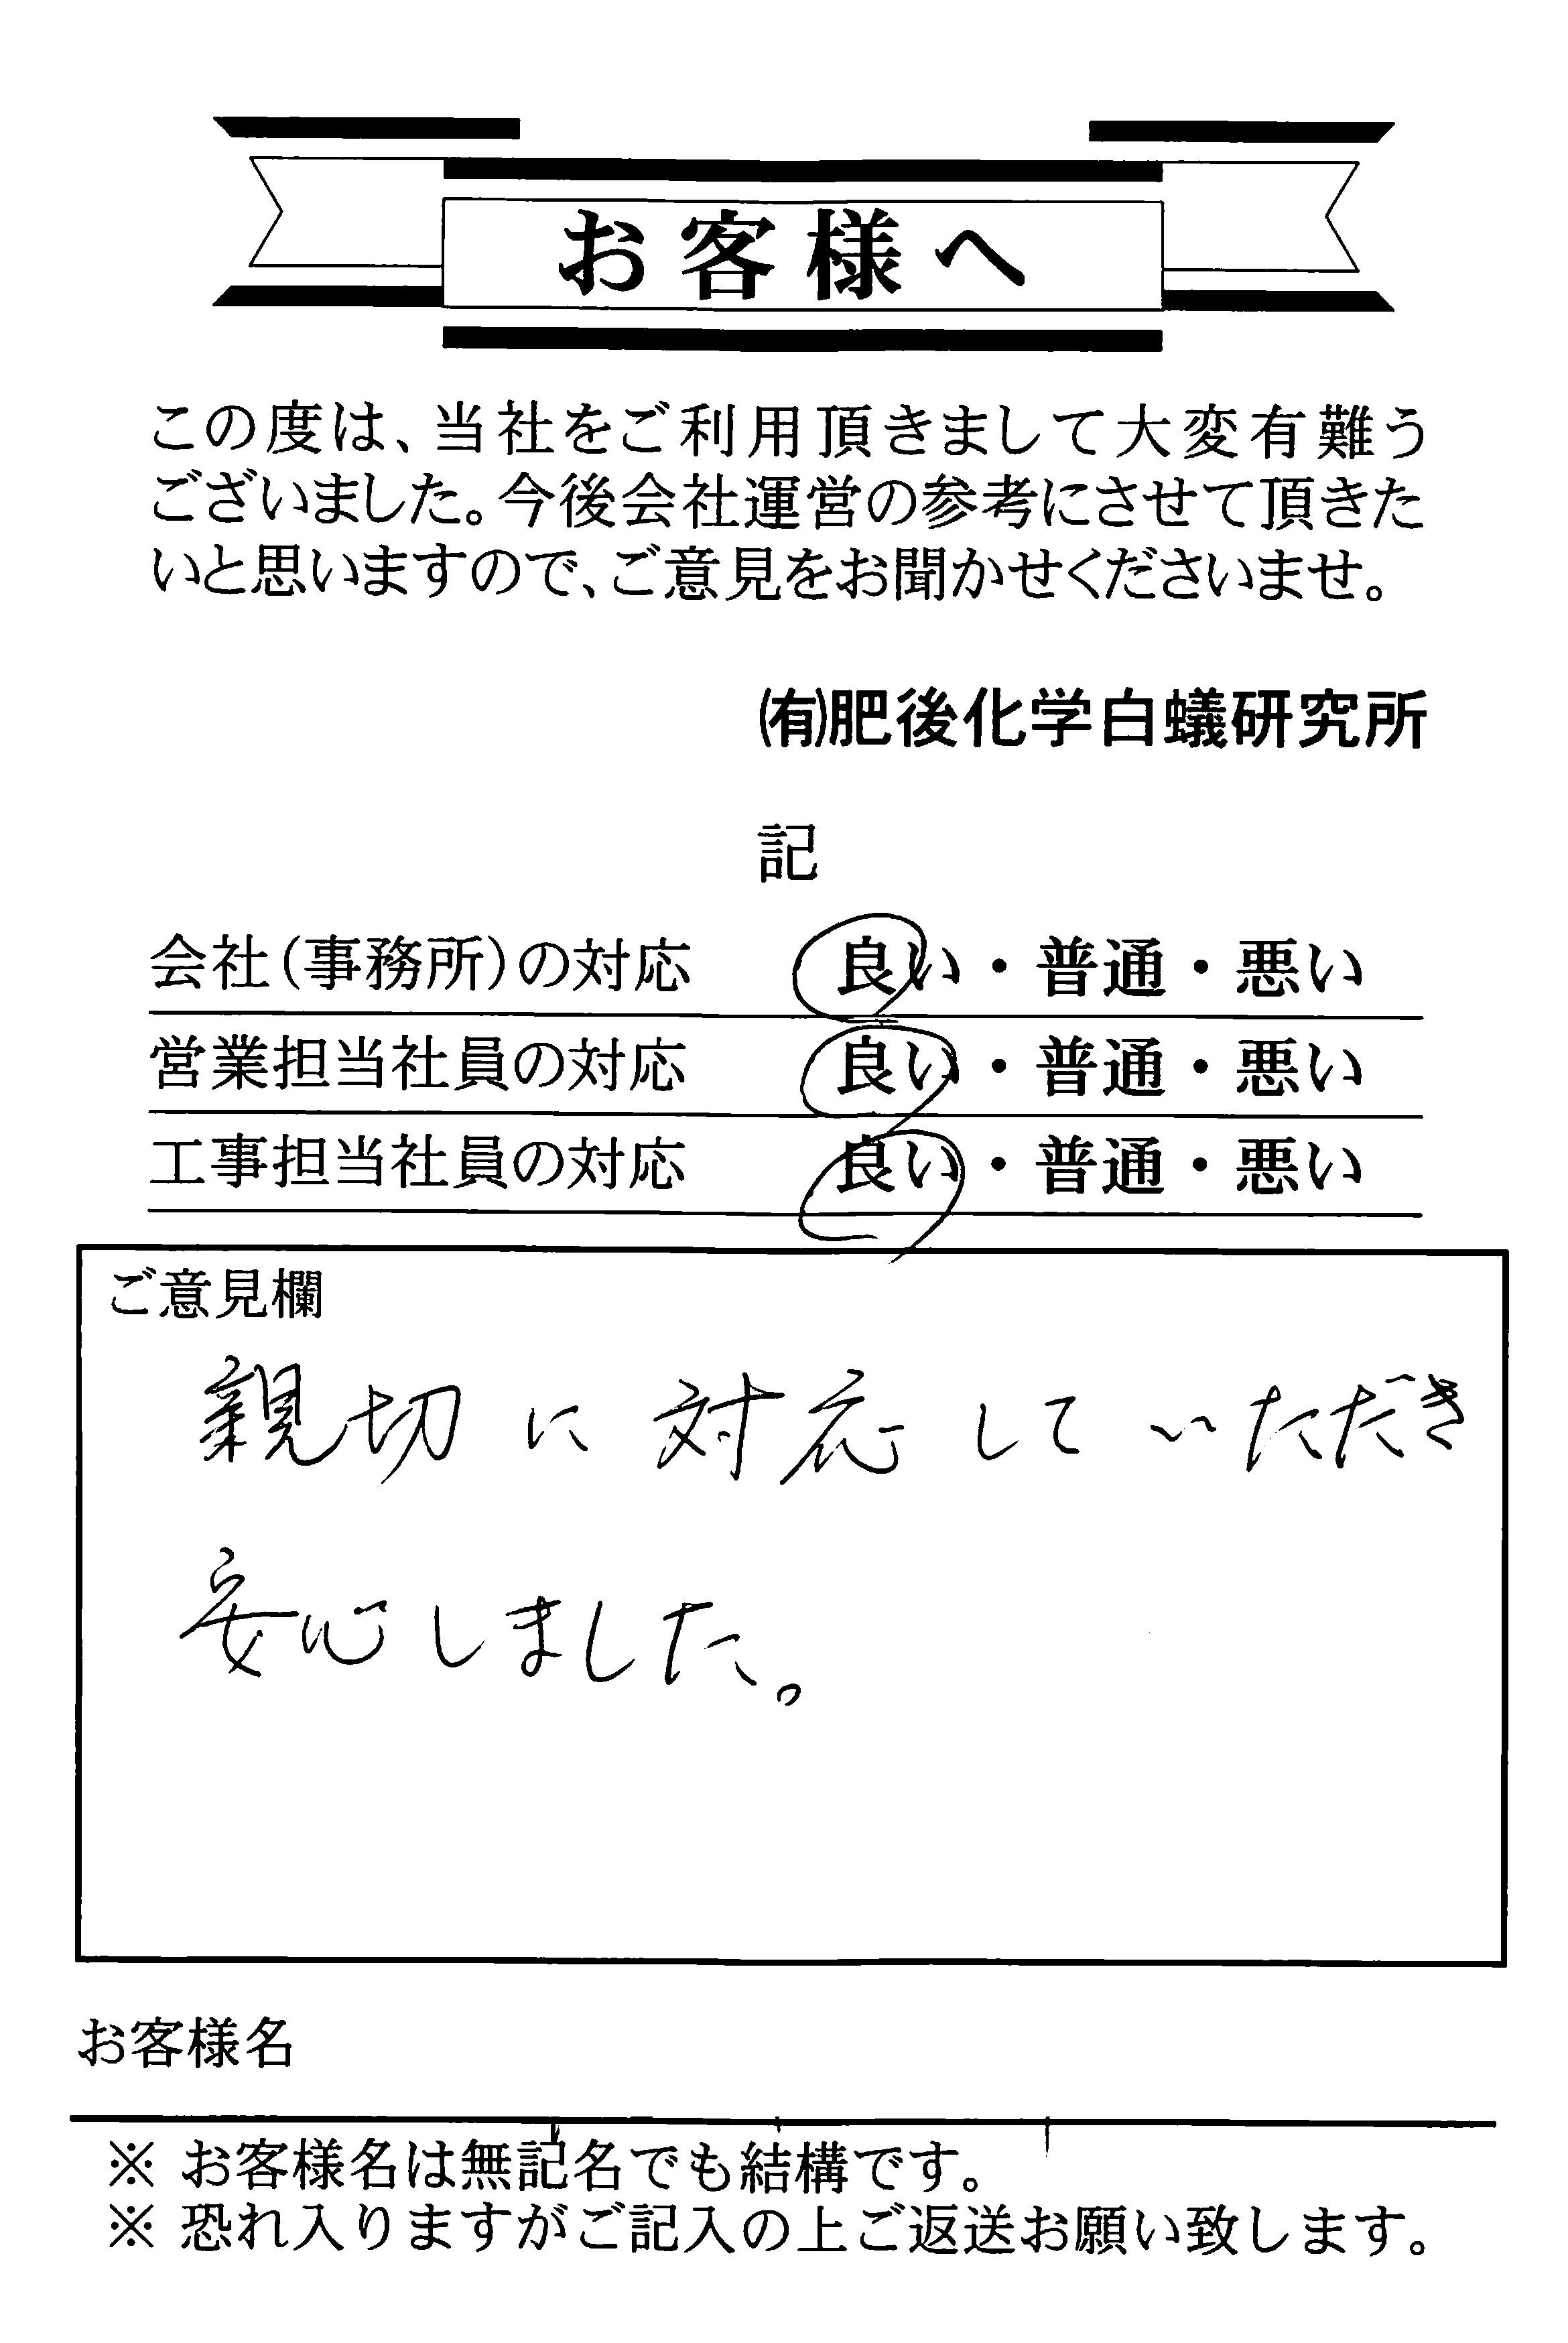 お客様へ
この度は、当社をご利用頂きまして大変有難う
ございました。今後会社運営の参考にさせて頂きた
いと思いますので、ご意見をお聞かせくださいませ。
㈲肥後化学白蟻研究所
記
会社(事務所)の対応 良い・普通・悪い
営業担当社員の対応 良い・普通・悪い
工事担当社員の対応 良い・普通・悪い
ご意見欄
親切に対応していただき
安心しました。
お客様名
※ お客様名は無記名でも結構です。
※ 恐れ入りますがご記入の上ご返送お願い致します。